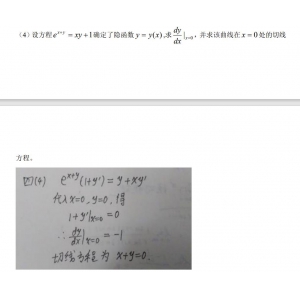 （4）设方程e^{x+y} = xy+1确定了隐函数 y = y(x) ,求 dy/dx |_{x=0}，并求该曲线在 x = 0 处的切线
方程。
四(4) e^{x+y}(1+y')=y+xy'
代入x=0, y=0, 得
1+y'|_{x=0}=0
∴ dy/dx|_{x=0} = -1
切线方程为 x+y=0.